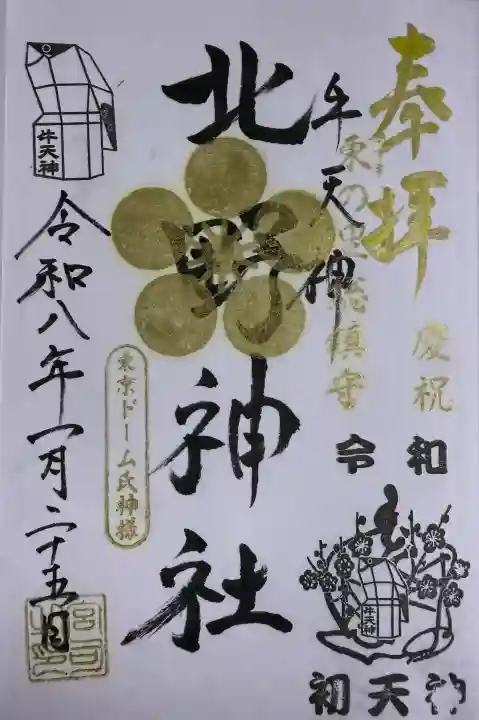 奉拝
慶祝
令和
牛天神
東の
総鎮守
北野神社
東京ドーム氏神様
牛天神
令和八年一月二十五日
牛天神
初天神